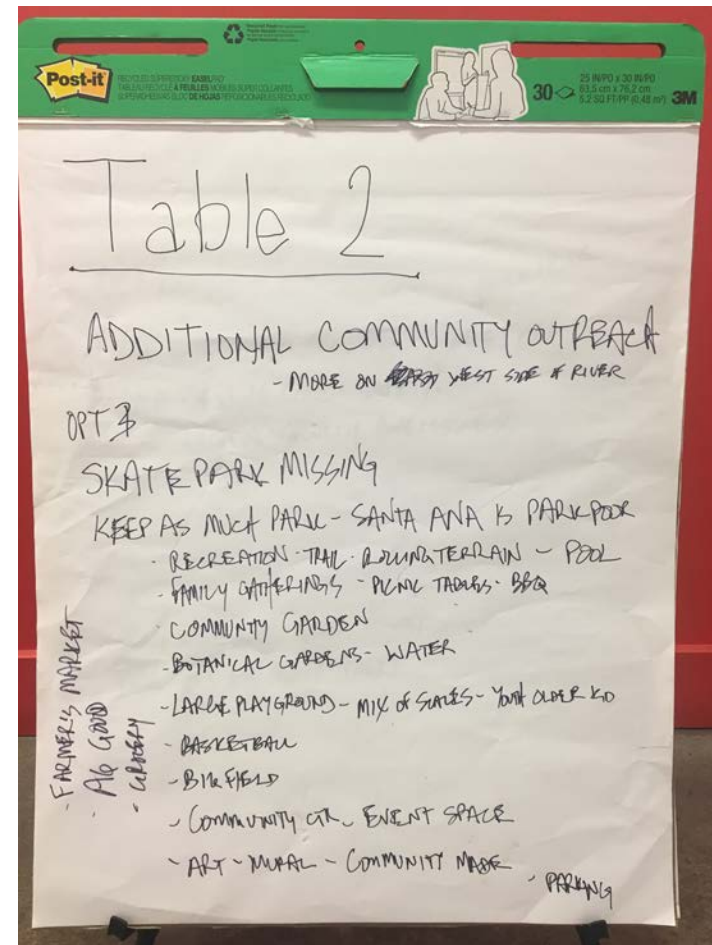 Post-it
RECYCLED SUPERSTICKY EASEL PAD
30
25 IN/PO x 30 IN/PO
63,5 cm x 76,2 cm
5.2 SQ FT/PP (0,48 m²)
3M
Table 2
ADDITIONAL COMMUNITY OUTREACH
- MORE ON WEST SIDE OF RIVER
OPT 3
SKATE PARK MISSING
KEEP AS MUCH PARK - SANTA ANA IS PARK POOR
· RECREATION · TRAIL · ROLLING TERRAIN - POOL
- FAMILY GATHERINGS - PICNIC TABLES · BBQ
- COMMUNITY GARDEN
- BOTANICAL GARDENS - WATER
- LARGE PLAYGROUND - MIX OF SCALES - YOUTH OLDER KID
- BASKETBALL
- BIG FIELD
- COMMUNITY CTR - EVENT SPACE
- ART - MURAL - COMMUNITY MADE
- PARKING
- FARMER'S MARKET
· GOOD
- GROCERY